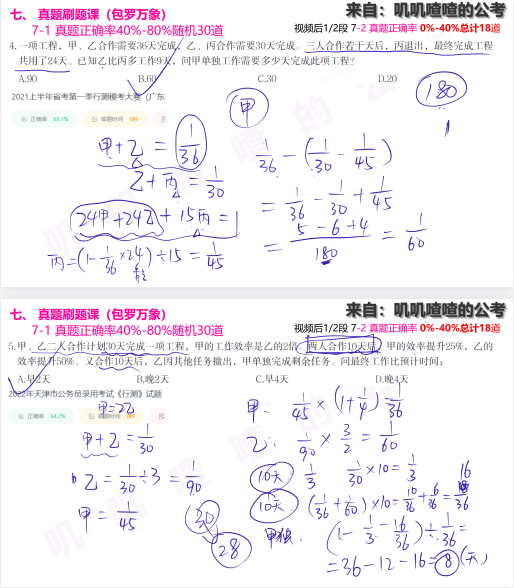 七、 真题刷题课（包罗万象）
来自：叽叽喳喳的公考
7-1 真题正确率40%-80%随机30道
视频后1/2段 7-2 真题正确率 0%-40%总计18道
4.一项工程，甲、乙合作需要36天完成，乙、丙合作需要30天完成。三人合作若干天后，丙退出，最终完成工程
共用了24天。已知乙比丙多工作9天，问甲单独工作需要多少天完成此项工程?
A.90 B.60 C.30 D.20
2021上半年省考第一季行测模考大赛（广东
正确率 65.1% 答题时间
甲 180
甲+乙 = 1/36
1/36 - (1/30 - 1/45)
乙+丙 = 1/30
= 1/36 - 1/30 + 1/45
24甲+24乙+15丙=1
= (5-6+4)/180 = 1/60
丙=(1-1/36×24)÷15=1/45
七、 真题刷题课（包罗万象）
来自：叽叽喳喳的公考
7-1 真题正确率40%-80%随机30道
视频后1/2段 7-2 真题正确率 0%-40%总计18道
5.甲、乙二人合作计划30天完成一项工程，甲的工作效率是乙的2倍，两人合作10天后，甲的效率提升25%，乙的
效率提升50%。又合作10天后，乙因其他任务撤出，甲单独完成剩余任务。问最终工作比预计时间：
A.早2天 B.晚2天 C.早4天 D.晚4天
2022年天津市公务员录用考试《行测》试题
正确率 64.2% 答题时间
甲=2乙
甲: 1/45 × (1+1/4) = 1/36
甲+乙 = 1/30
乙: 1/90 × 3/2 = 1/60
乙 = 1/30 ÷3 = 1/90
10天 1/3 1/30 ×10 = 1/3
甲 = 1/45
10天 (1/36 + 1/60) ×10 = 10/36 + 6/36 = 16/36
30
28
甲独 (1 - 1/3 - 16/36) ÷ 1/36 =
=36-12-16=8(天)